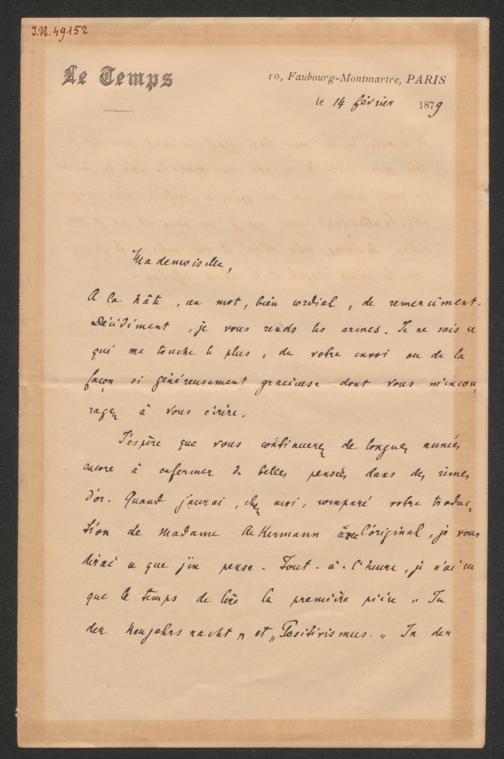 I.N. 49152
Le Temps
10, Faubourg-Montmartre, PARIS
le 14 février 1879
Mademoiselle,
A la hâte, un mot, bien cordial, de remerciment.
Décidément, je vous rends les armes. Je ne sais ce
qui me touche le plus, de votre envoi ou de la
façon si généreusement gracieuse dont vous m'encou
ragez à vous écrire.
J'espère que vous continuerez de longues années
encore à enfermer de belles pensées dans des rimes
d'or. Quand j'aurai, chez moi, comparé votre traduc-
tion de Madame Ackermann avec l'original, je vous
dirai ce que j'en pense. Tout-à-l'heure, je n'ai eu
que le temps de lire la première pièce „In
der Neujahrsnacht" et „Positivismus." In der